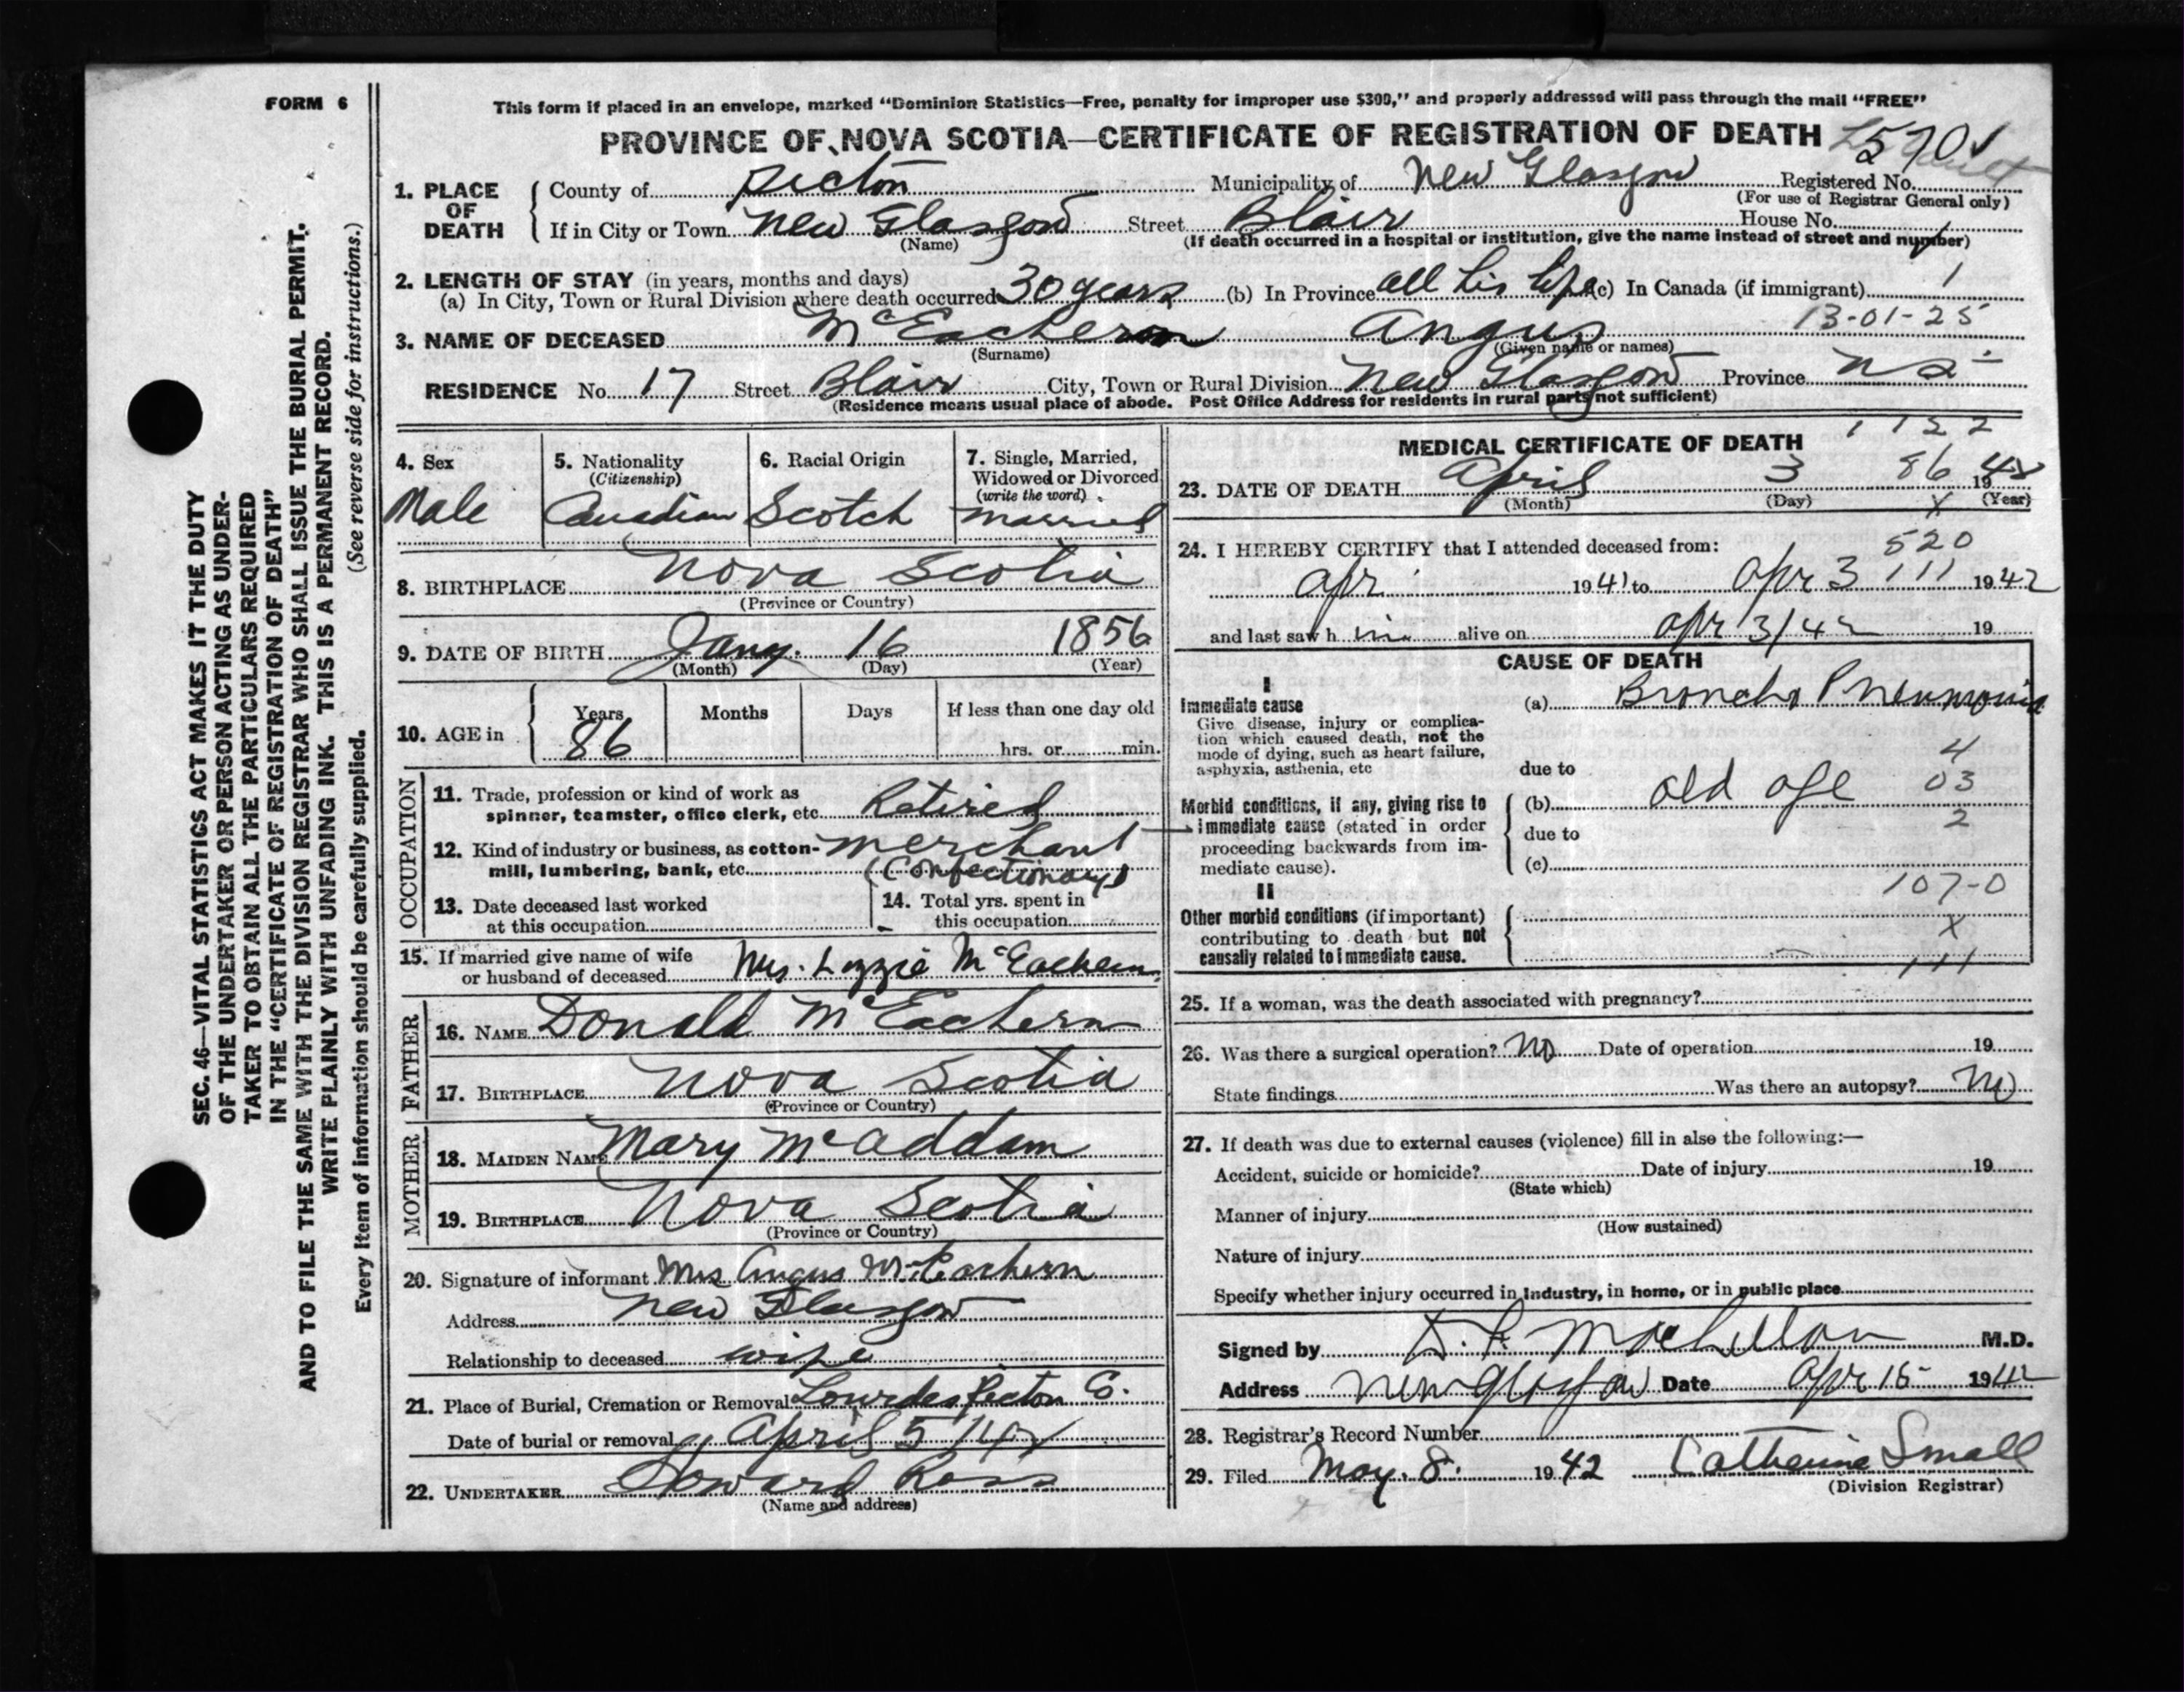 FORM 6
This form if placed in an envelope, marked “Dominion Statistics—Free, penalty for improper use $300,” and properly addressed will pass through the mail “FREE”
PROVINCE OF NOVA SCOTIA—CERTIFICATE OF REGISTRATION OF DEATH
5701
1. PLACE OF DEATH
County of Pictou Municipality of New Glasgow Registered No.
(For use of Registrar General only)
If in City or Town New Glasgow Street Blair House No.
(Name)
(If death occurred in a hospital or institution, give the name instead of street and number)
2. LENGTH OF STAY (in years, months and days)
(a) In City, Town or Rural Division where death occurred 30 years (b) In Province all his life (c) In Canada (if immigrant) 1
13-01-25
3. NAME OF DECEASED McEachern Angus
(Surname) (Given name or names)
RESIDENCE No. 17 Street Blair City, Town or Rural Division New Glasgow Province N S
(Residence means usual place of abode. Post Office Address for residents in rural parts not sufficient)
4. Sex
Male
5. Nationality
(Citizenship)
Canadian
6. Racial Origin
Scotch
7. Single, Married,
Widowed or Divorced
(write the word)
Married
8. BIRTHPLACE Nova Scotia
(Province or Country)
9. DATE OF BIRTH Jany. 16 1856
(Month) (Day) (Year)
10. AGE in Years Months Days If less than one day old
86 hrs. or min.
OCCUPATION
11. Trade, profession or kind of work as
spinner, teamster, office clerk, etc. Retired
12. Kind of industry or business, as cotton-
mill, lumbering, bank, etc. merchant
(Confectionary)
13. Date deceased last worked
at this occupation
14. Total yrs. spent in
this occupation
15. If married give name of wife
or husband of deceased Mrs. Lizzie McEachern
FATHER
16. NAME Donald McEachern
17. BIRTHPLACE Nova Scotia
(Province or Country)
MOTHER
18. MAIDEN NAME Mary McAddam
19. BIRTHPLACE Nova Scotia
(Province or Country)
20. Signature of informant Mrs Angus McEachern
Address New Glasgow
Relationship to deceased wife
21. Place of Burial, Cremation or Removal Lourdes Pictou Co.
Date of burial or removal April 5/42
22. UNDERTAKER Howard Ross
(Name and address)
MEDICAL CERTIFICATE OF DEATH
1152
86
23. DATE OF DEATH April 3 1942
(Month) (Day) (Year)
X
24. I HEREBY CERTIFY that I attended deceased from:
520
Apr 1941 to Apr 3 111 1942
and last saw h im alive on Apr 3/42 19
CAUSE OF DEATH
I
Immediate cause
Give disease, injury or complica-
tion which caused death, not the
mode of dying, such as heart failure,
asphyxia, asthenia, etc
(a) Broncho Pneumonia
4
due to
03
Morbid conditions, if any, giving rise to
immediate cause (stated in order
proceeding backwards from im-
mediate cause).
(b) old age
2
due to
(c)
107-0
II
Other morbid conditions (if important)
contributing to death but not
causally related to immediate cause.
X
111
25. If a woman, was the death associated with pregnancy?
26. Was there a surgical operation? No Date of operation 19
State findings Was there an autopsy? No
27. If death was due to external causes (violence) fill in also the following:—
Accident, suicide or homicide? Date of injury 19
(State which)
Manner of injury
(How sustained)
Nature of injury
Specify whether injury occurred in industry, in home, or in public place
Signed by M.D.
Address New Glasgow Date Apr 15 1942
28. Registrar's Record Number
29. Filed May. 8. 1942 Catherine Small
(Division Registrar)
SEC. 46—VITAL STATISTICS ACT MAKES IT THE DUTY
OF THE UNDERTAKER OR PERSON ACTING AS UNDER-
TAKER TO OBTAIN ALL THE PARTICULARS REQUIRED
IN THE “CERTIFICATE OF REGISTRATION OF DEATH”
AND TO FILE THE SAME WITH THE DIVISION REGISTRAR WHO SHALL ISSUE THE BURIAL PERMIT.
WRITE PLAINLY WITH UNFADING INK. THIS IS A PERMANENT RECORD.
Every item of information should be carefully supplied. (See reverse side for instructions.)